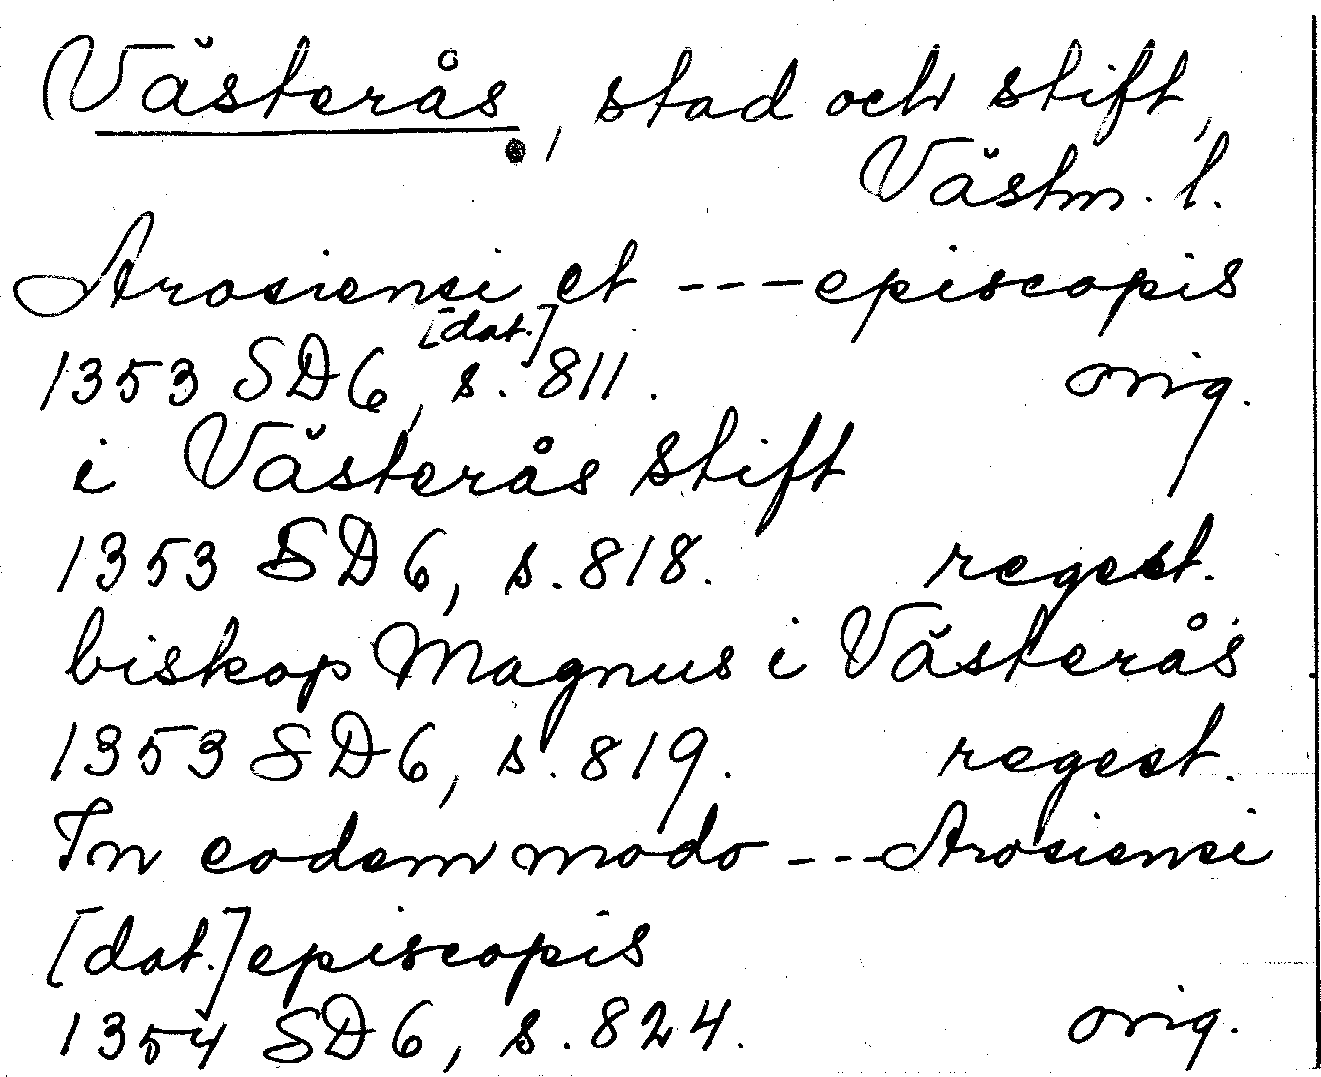 Västerås, stad och stift,
Västm. l.
Arosiensi et --- episcopis
[dat.]
1353 SD 6, s. 811. orig.
i Västerås stift
1353 SD 6, s. 818. regest.
biskop Magnus i Västerås
1353 SD 6, s. 819. regest.
In eodem modo --- Arosiensi
[dat.] episcopis
1354 SD 6, s. 824. orig.